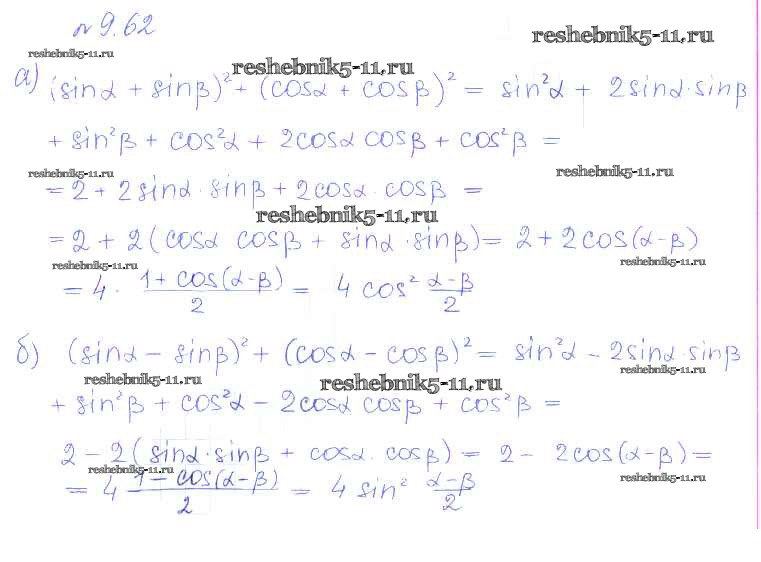 № 9.62
reshebnik5-11.ru
reshebnik5-11.ru
reshebnik5-11.ru
а) (sinα + sinβ)² + (cosα + cosβ)² = sin²α + 2sinα·sinβ
+ sin²β + cos²α + 2cosα cosβ + cos²β =
reshebnik5-11.ru
reshebnik5-11.ru
= 2 + 2sinα·sinβ + 2cosα·cosβ =
reshebnik5-11.ru
= 2 + 2(cosα cosβ + sinα·sinβ) = 2 + 2cos(α-β)
reshebnik5-11.ru
reshebnik5-11.ru
= 4 · (1 + cos(α-β))/2 = 4 cos² (α-β)/2
б) (sinα - sinβ)² + (cosα - cosβ)² = sin²α - 2sinα·sinβ
reshebnik5-11.ru
reshebnik5-11.ru
reshebnik5-11.ru
+ sin²β + cos²α - 2cosα cosβ + cos²β =
2 - 2(sinα·sinβ + cosα·cosβ) = 2 - 2cos(α-β) =
reshebnik5-11.ru
reshebnik5-11.ru
= 4 (1 - cos(α-β))/2 = 4 sin² (α-β)/2